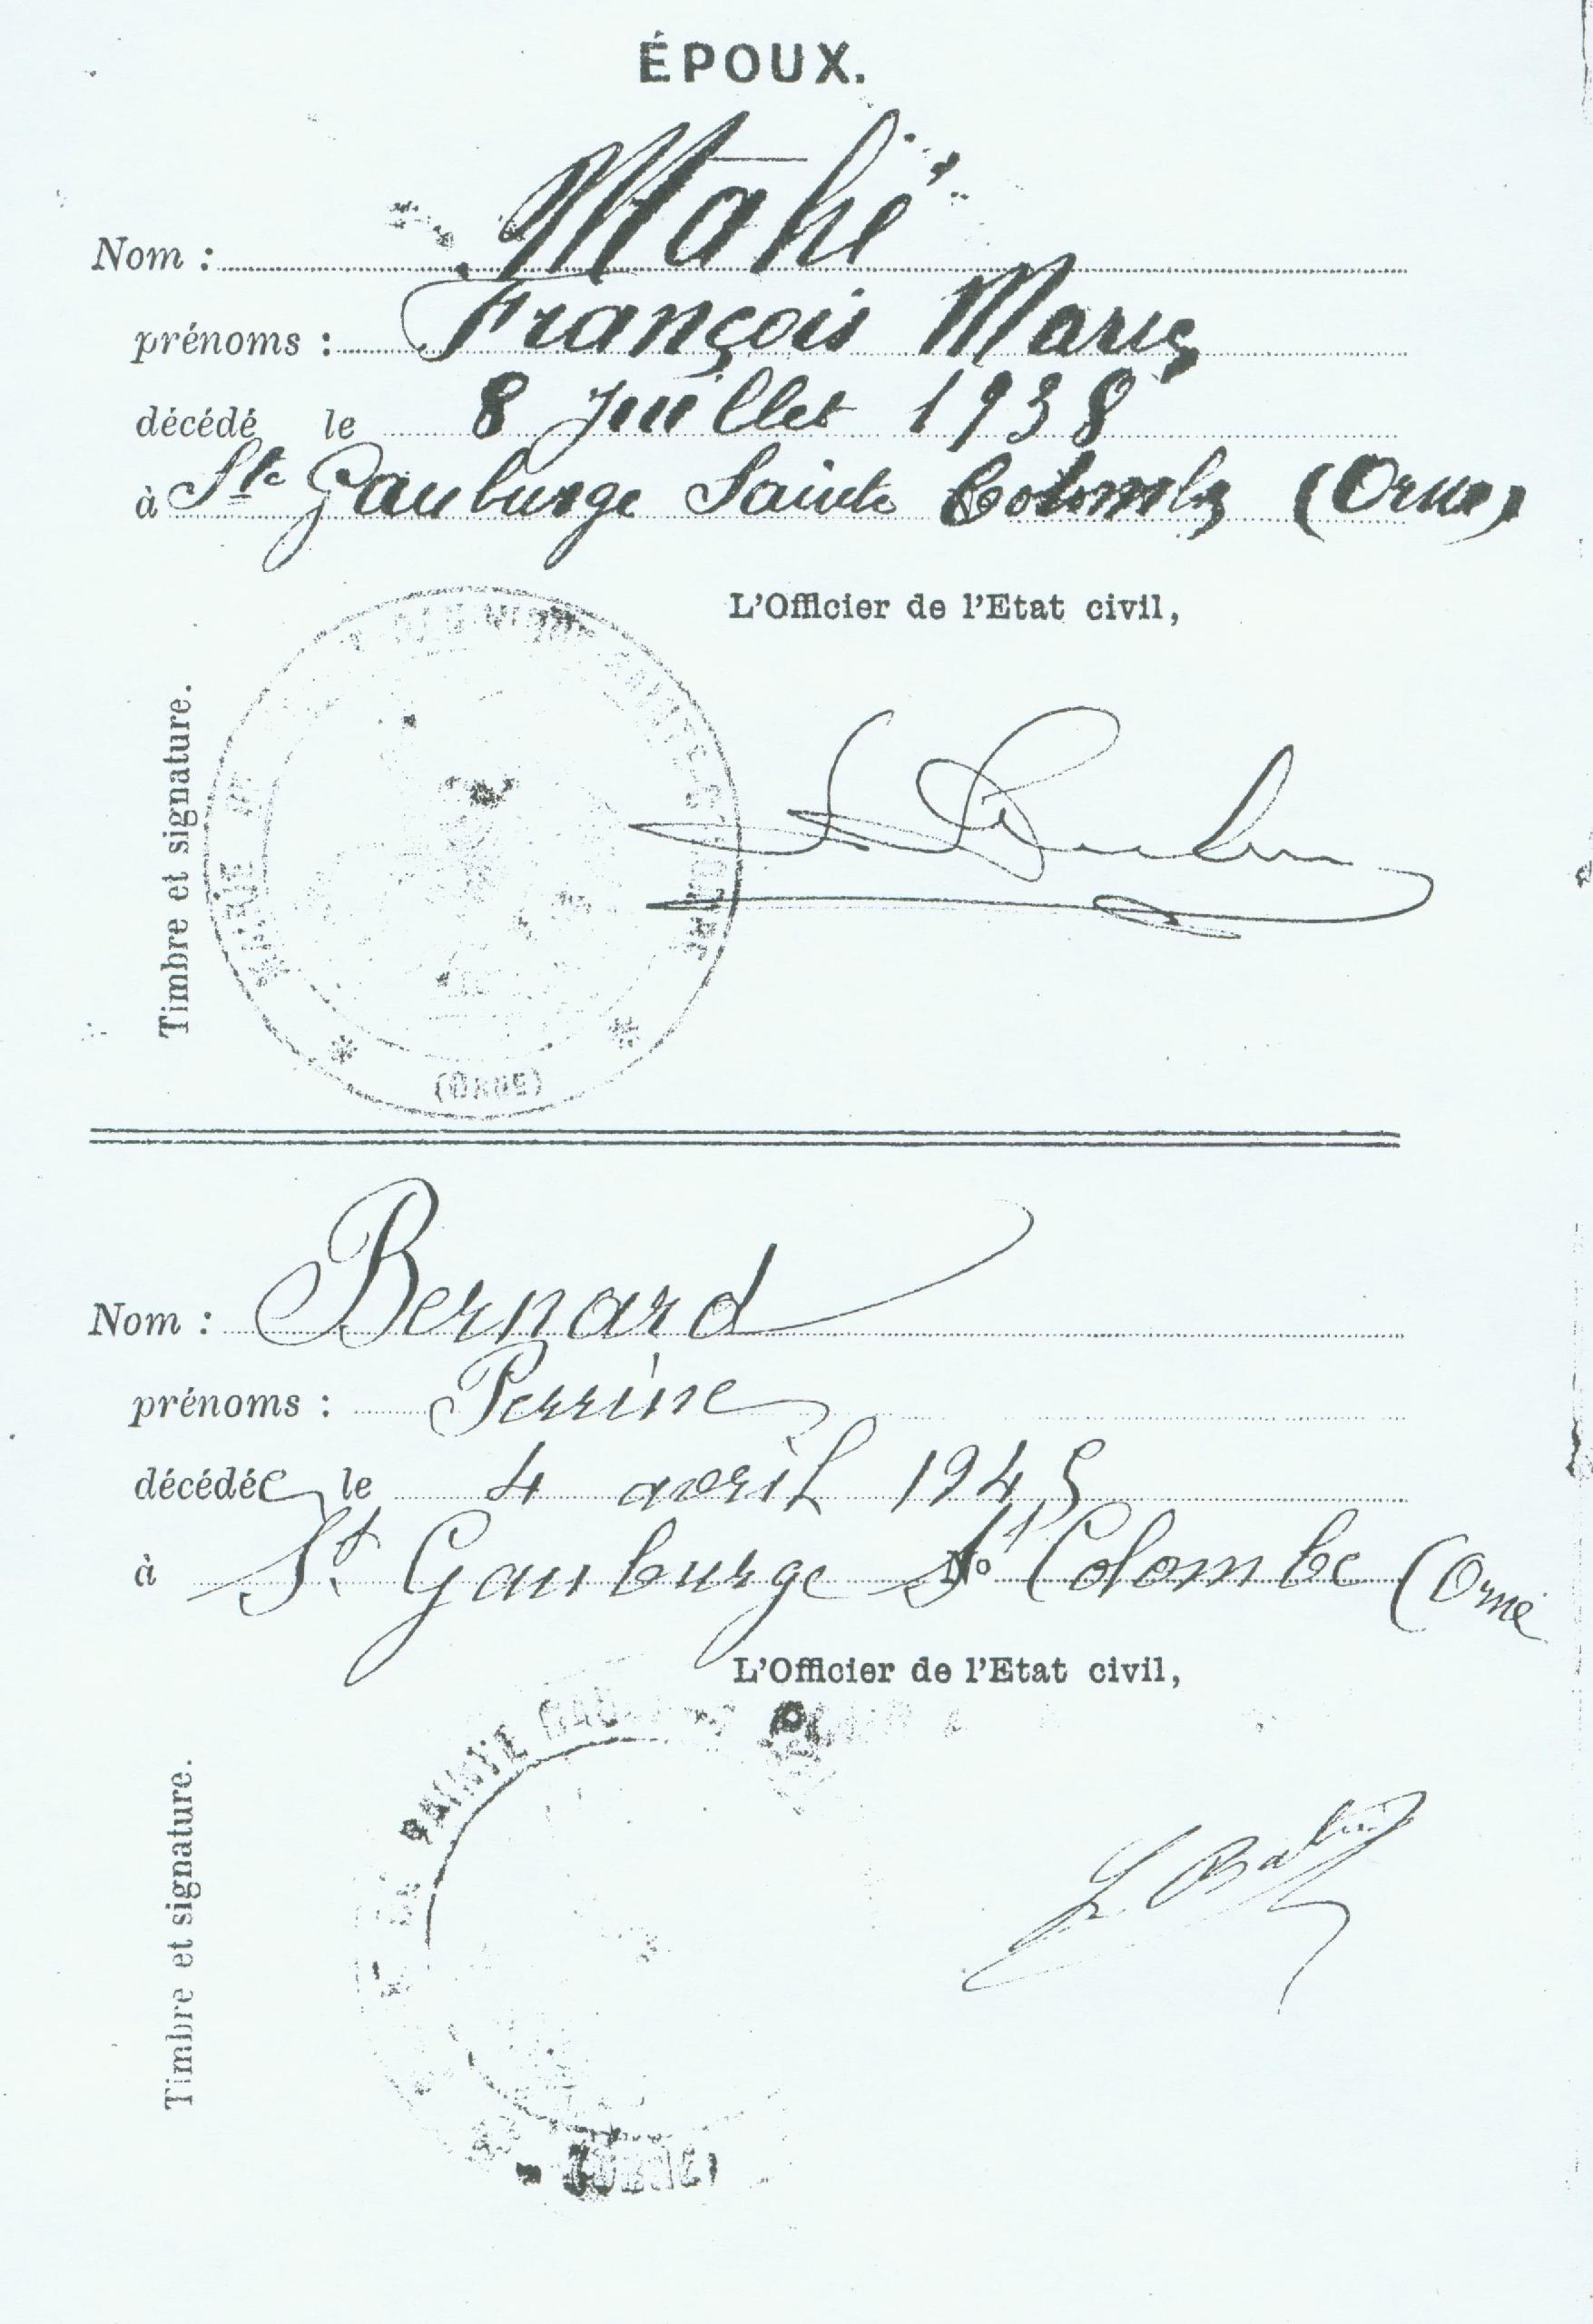 ÉPOUX.
Nom : Mahé
prénoms : François Marie
décédé le 8 Juillet 1938
à Ste Gauburge Sainte Colombe (Orne)
L'Officier de l'Etat civil,
Timbre et signature.
MAIRIE
(ORNE)
Nom : Bernard
prénoms : Perrine
décédée le 4 avril 1945
à St Gauburge St Colombe (Orne
No
L'Officier de l'Etat civil,
Timbre et signature.
SAINTE